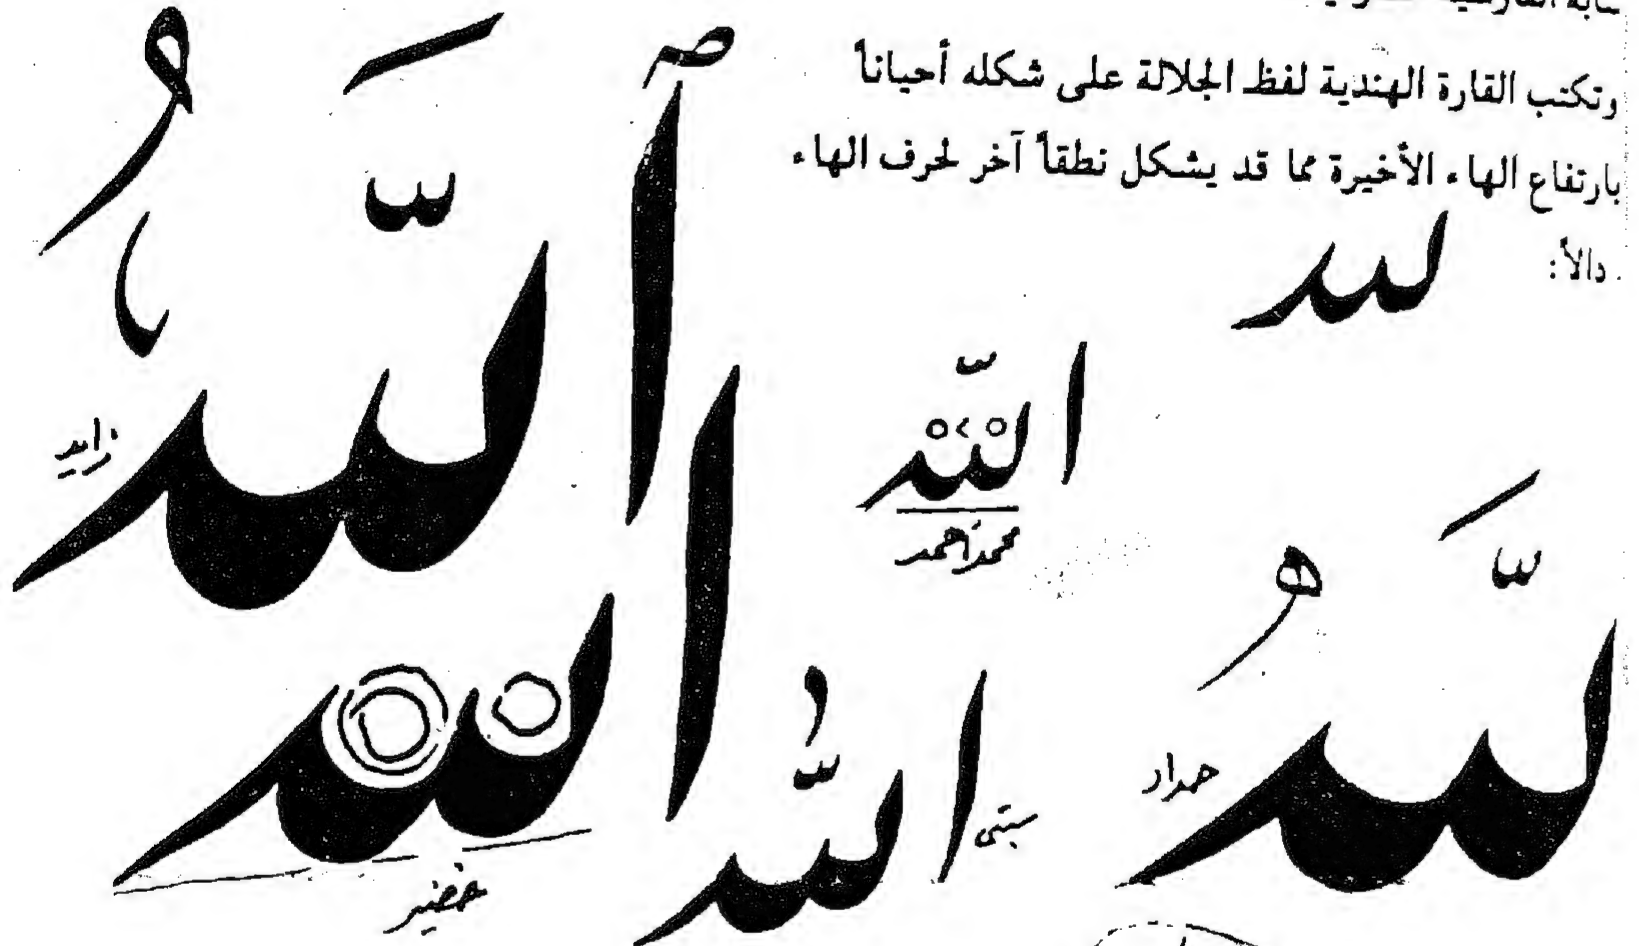 وتكتب القارة الهندية لفظ الجلالة على شكله أحياناً
بارتفاع الهاء الأخيرة مما قد يشكل نطقاً آخر لحرف الهاء
دالاً:
لله
اللهُ
زايد
الله
محمد أحمد
للهُ
حداد
الله
خضير
الله
سبتي